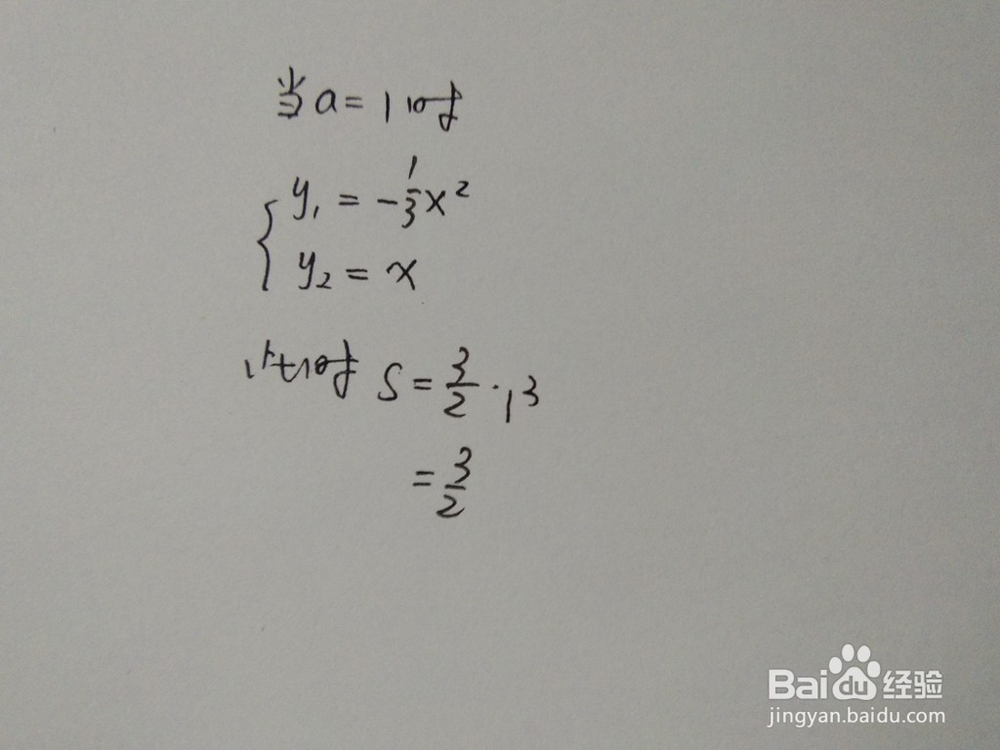 当a=1时
y₁=-⅓x²
y₂=x
此时 S=3/2·1³
=3/2
Baidu经验
jingyan.baidu.com